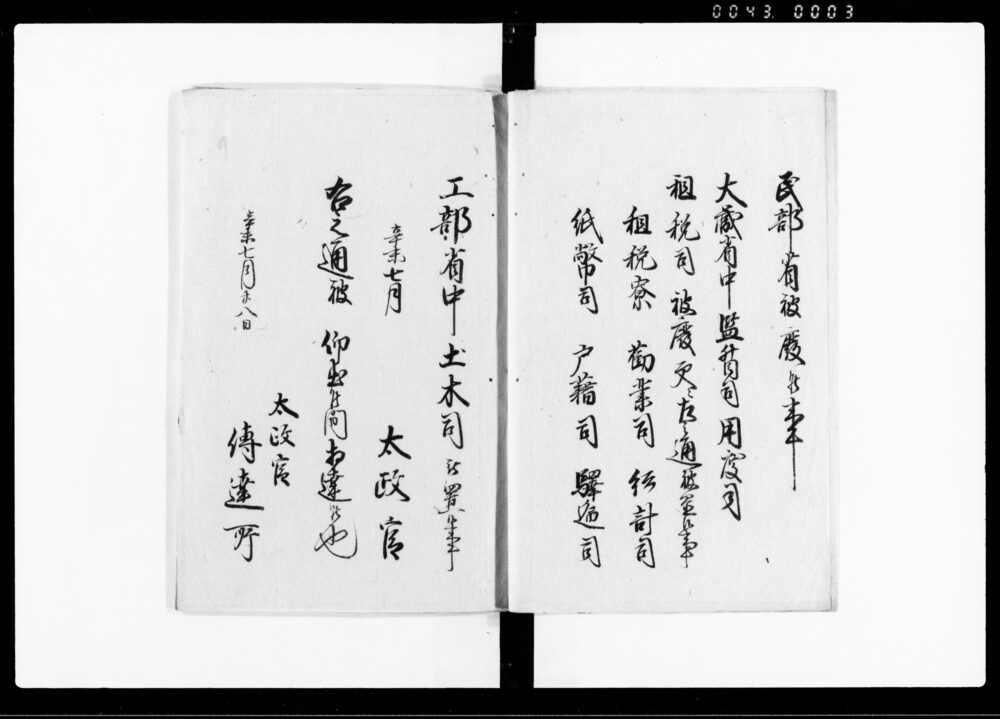 0043. 0003
民部省被廢候事
大蔵省中監督司用度司
租税司被廢更ニ左之通被置候事
租税寮 勧業司 統計司
紙幣司 戸籍司 驛逓司
工部省中土木司被置候事
辛未七月 太政官
右之通被 仰出候間相達候也
辛未七月廿八日 太政官
傳達所